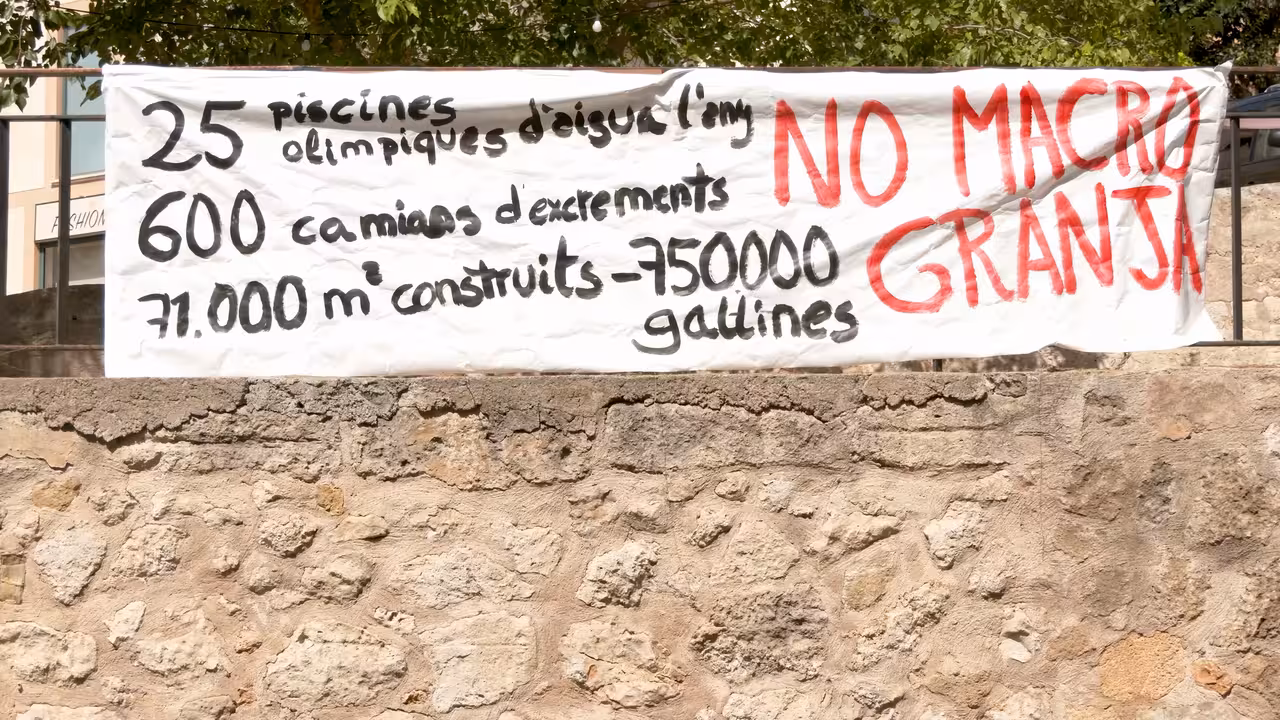 25 piscines
olimpiques d'aigua l'any
600 camions d'excrements
71.000 m² construits – 750000
gallines
NO MACRO
GRANJA
FASHION